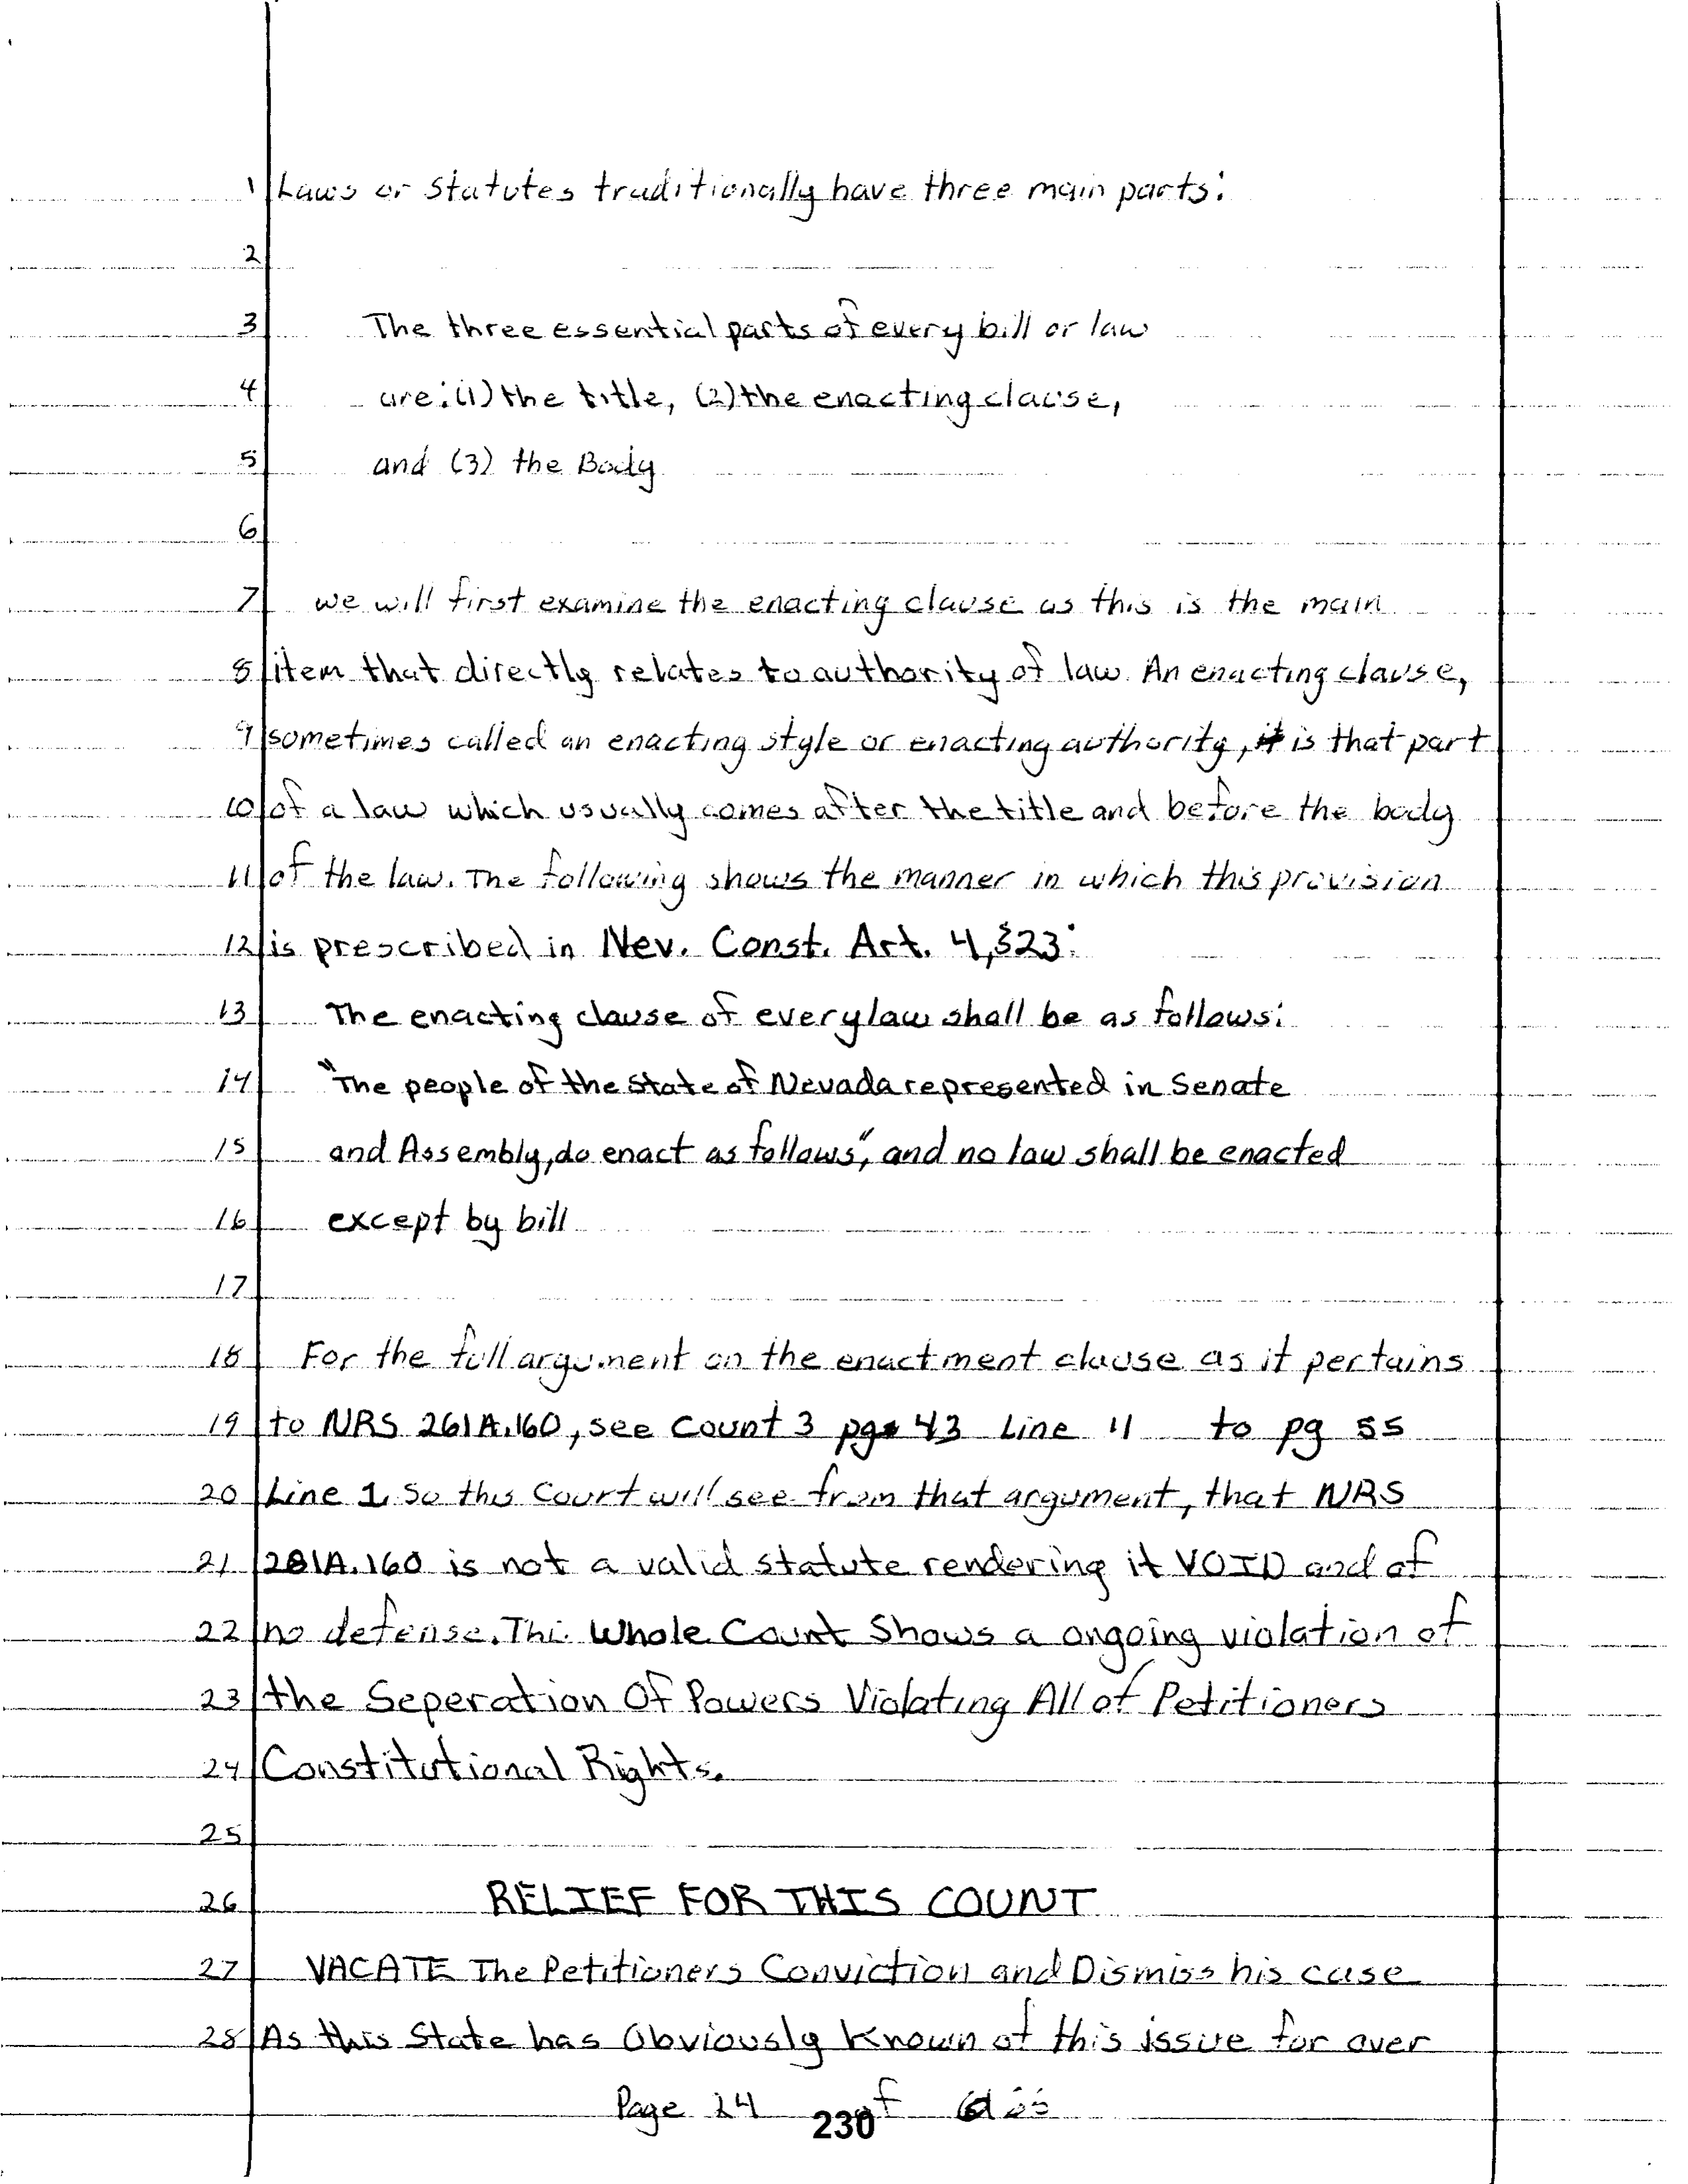 1 Laws or Statutes traditionally have three main parts:
2
3 The three essential parts of every bill or law
4 are: (1) the title, (2) the enacting clause,
5 and (3) the Body
6
7 we will first examine the enacting clause as this is the main
8 item that directly relates to authority of law. An enacting clause,
9 sometimes called an enacting style or enacting authority, it is that part
10 of a law which usually comes after the title and before the body
11 of the law. The following shows the manner in which this provision
12 is prescribed in Nev. Const. Art. 4, §23:
13 The enacting clause of every law shall be as follows:
14 "The people of the State of Nevada represented in Senate
15 and Assembly, do enact as follows", and no law shall be enacted
16 except by bill
17
18 For the full argument on the enactment clause as it pertains
19 to NRS 261A.160, see Count 3 pg 43 Line 11 to pg 55
20 Line 1. So this Court will see from that argument, that NRS
21 281A.160 is not a valid statute rendering it VOID and of
22 no defense. Thi. Whole Count Shows a ongoing violation of
23 the Seperation Of Powers Violating All of Petitioners
24 Constitutional Rights.
25
26 RELIEF FOR THIS COUNT
27 VACATE The Petitioners Conviction and Dismiss his case
28 As this State has Obviously Known of this issue for over
Page 24 of
230